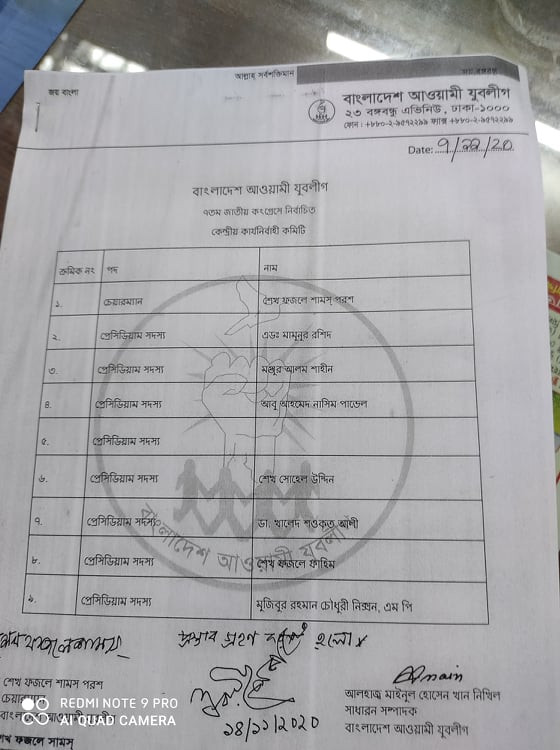 আল্লাহ সর্বশক্তিমান
জয় বাংলা
বাংলাদেশ আওয়ামী যুবলীগ
২৩ বঙ্গবন্ধু এভিনিউ, ঢাকা-১০০০
ফোন : +৮৮০-২-৯৫৭২২৯৯ ফ্যাক্স +৮৮০-২-৯৫৭২২৯৯
Date:
বাংলাদেশ আওয়ামী যুবলীগ
৭তম জাতীয় কংগ্রেসে নির্বাচিত
কেন্দ্রীয় কার্যনির্বাহী কমিটি
ক্রমিক নং পদ নাম
১. চেয়ারম্যান শেখ ফজলে শামস্ পরশ
২. প্রেসিডিয়াম সদস্য এডঃ মামুনুর রশিদ
৩. প্রেসিডিয়াম সদস্য মঞ্জুর আলম শাহীন
৪. প্রেসিডিয়াম সদস্য আবু আহমেদ নাসিম পাভেল
৫. প্রেসিডিয়াম সদস্য
৬. প্রেসিডিয়াম সদস্য শেখ সোহেল উদ্দিন
৭. প্রেসিডিয়াম সদস্য ডা. খালেদ শওকত আলী
৮. প্রেসিডিয়াম সদস্য শেখ ফজলে ফাহিম
৯. প্রেসিডিয়াম সদস্য মুজিবুর রহমান চৌধুরী নিক্সন, এম পি
বাংলাদেশ আওয়ামী যুবলীগ
শেখ ফজলে শামস পরশ
চেয়ারম্যান
আওয়ামী যুবলীগ
১৪/১১/২০২০
আলহাজ মাইনুল হোসেন খান নিখিল
সাধারন সম্পাদক
বাংলাদেশ আওয়ামী যুবলীগ
শেখ ফজলে শামস্
REDMI NOTE 9 PRO
AI QUAD CAMERA